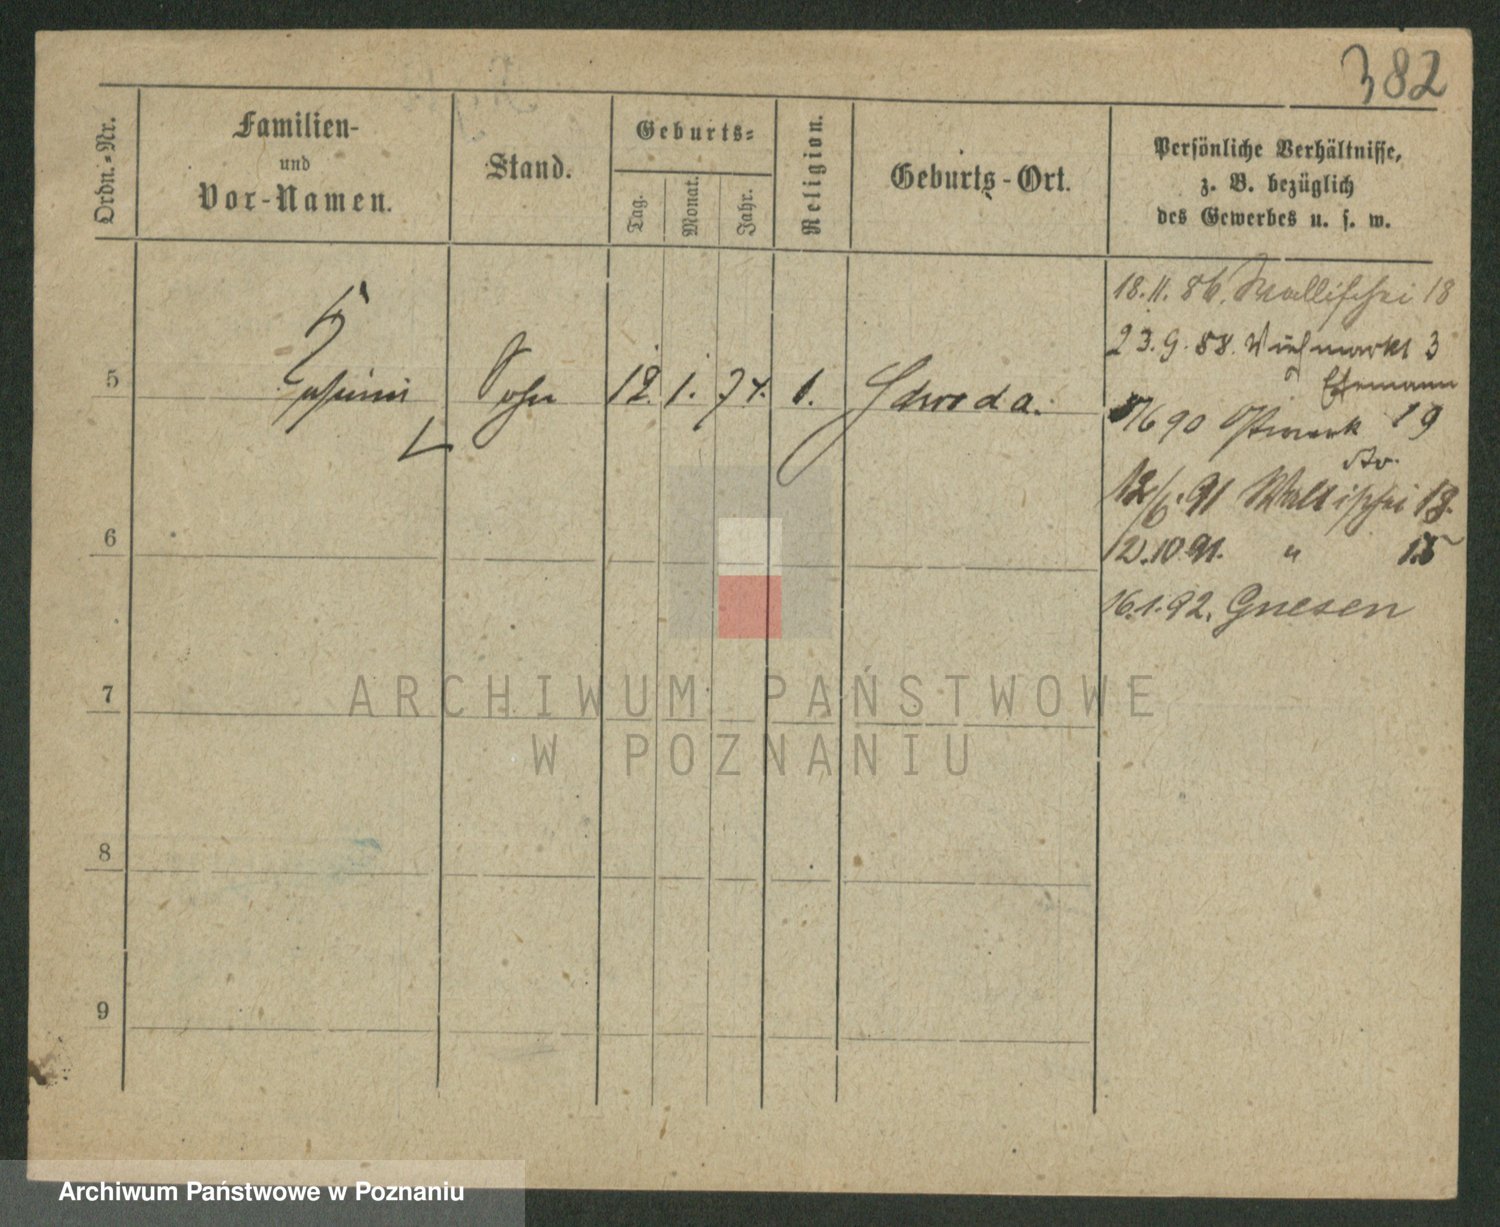 382
Ordn.-Nr.
Familien-
und
Vor-Namen.
Stand.
Geburts-
Tag.
Monat.
Jahr.
Religion.
Geburts-Ort.
Persönliche Verhältnisse,
z. B. bezüglich
des Gewerbes u. s. w.
18.11.86. Wallischei 18
23.9.88. Viehmarkt 3
5 Sohn 12. 1. 74. Schroda.
6 90 19
91 Wallischei 18.
6
12.10.91. " 15
16.1.92. Gnesen
7
8
9
ARCHIWUM PAŃSTWOWE
W POZNANIU
Archiwum Państwowe w Poznaniu